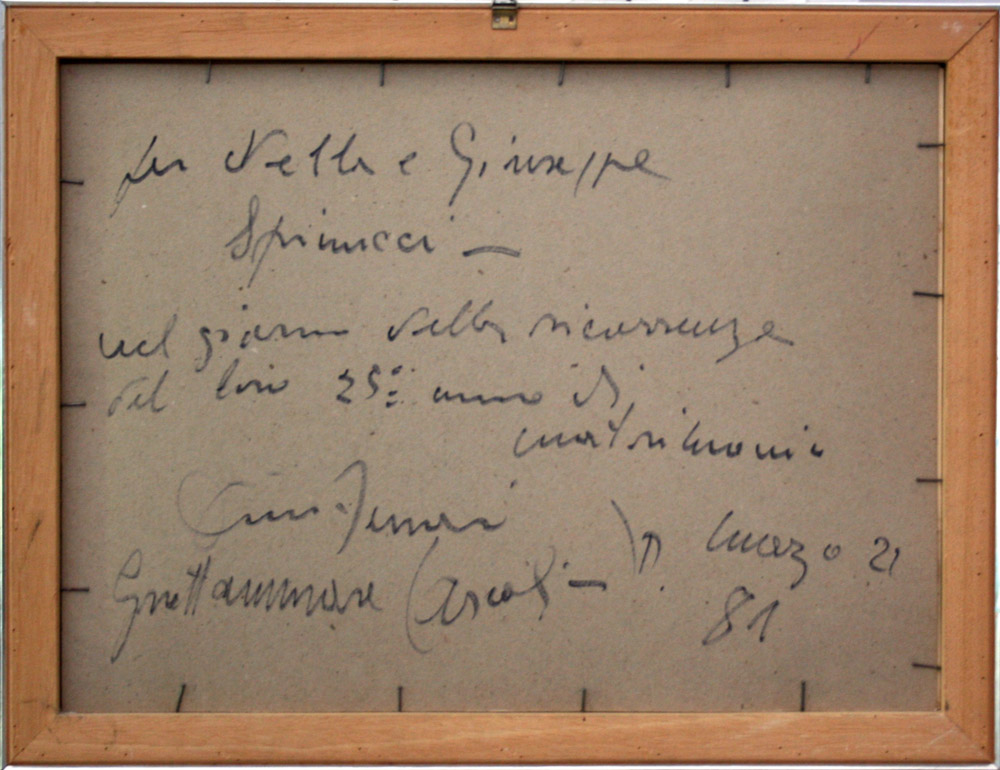 per Nella e Giuseppe
Spinucci —
nel giorno della ricorrenza
del loro 25º anno di
matrimonio
Grottammare (Ascoli — ) P. marzo 21
81